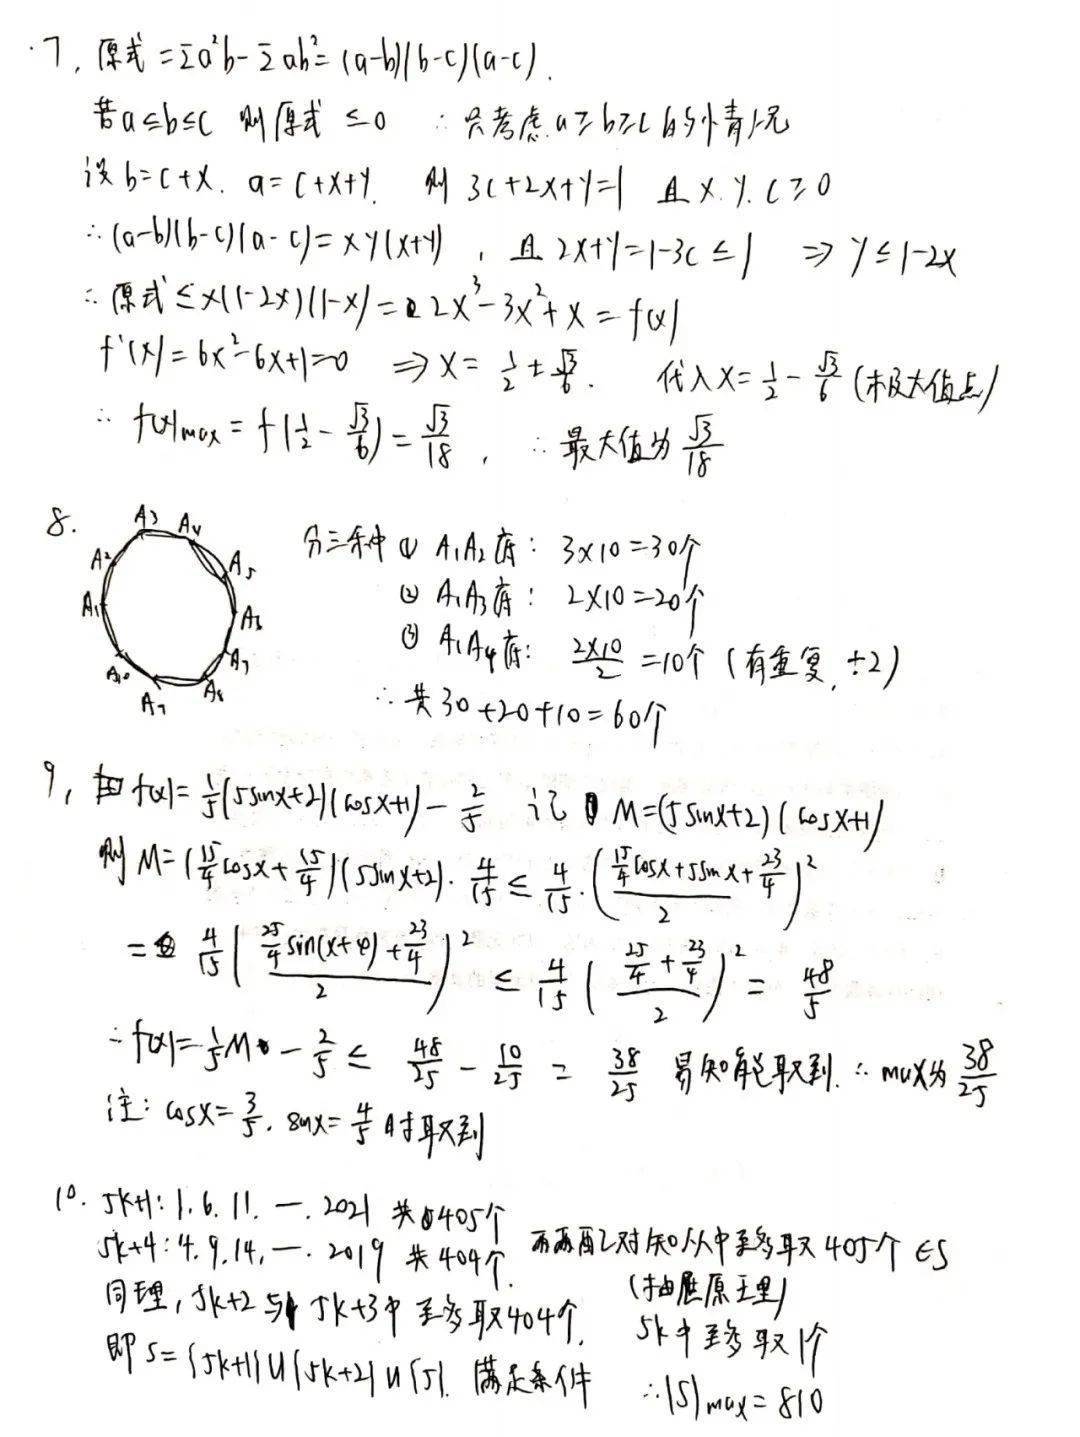 7, 原式=Σa²b-Σab²=(a-b)(b-c)(a-c).
若a≤b≤c 则原式≤0 ∴只考虑a≥b≥c的情况
设b=c+x. a=c+x+y. 则 3c+2x+y=1 且x.y.c≥0
∴(a-b)(b-c)(a-c)=xy(x+y), 且2x+y=1-3c≤1 ⇒ y≤1-2x
∴原式≤x(1-2x)(1-x)=2x³-3x²+x=f(x)
f'(x)=6x²-6x+1=0 ⇒x=1/2±√3/6. 代入x=1/2-√3/6(极大值点)
∴ f(x)max=f(1/2-√3/6)=√3/18, ∴最大值为√3/18
8. 分三种 ① A₁A₂底: 3×10=30个
② A₁A₃底: 2×10=20个
③ A₁A₄底: 2×10/2=10个(有重复,÷2)
∴共30+20+10=60个
A₃ A₄
A₂ A₅
A₁ A₆
A₁₀ A₇
A₉ A₈
9, 由f(x)=1/5(5sinx+2)(cosx+1)-2/5 记M=(5sinx+2)(cosx+1)
则M=(15/4cosx+15/4)(5sinx+2)·4/15≤4/15·((15/4cosx+5sinx+23/4)/2)²
=4/15((25/4sin(x+φ)+23/4)/2)²≤4/15((25/4+23/4)/2)²=48/5
∴f(x)=1/5M-2/5≤48/25-10/25=38/25 易知能取到.∴max为38/25
注: cosx=3/5, sinx=4/5时取到
10. 5k+1:1.6.11.—.2021 共405个
5k+4:4.9.14.—.2019 共404个. 两两配对知从中至多取405个∈S
(抽屉原理)
同理,5k+2与5k+3中至多取404个.
5k中至多取1个
即S={5k+1}∪{5k+2}∪{5}.满足条件
∴|S|max=810